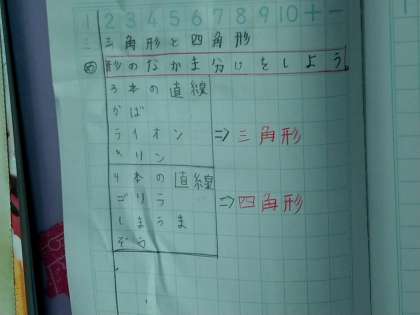 1 2 3 4 5 6 7 8 9 10 + −
三角形と四角形
め 形のなかま分けをしよう
3本の直線
かば
ライオン ⇒ 三角形
キリン
4本の直線
ゴリラ ⇒ 四角形
しまうま
ぞう